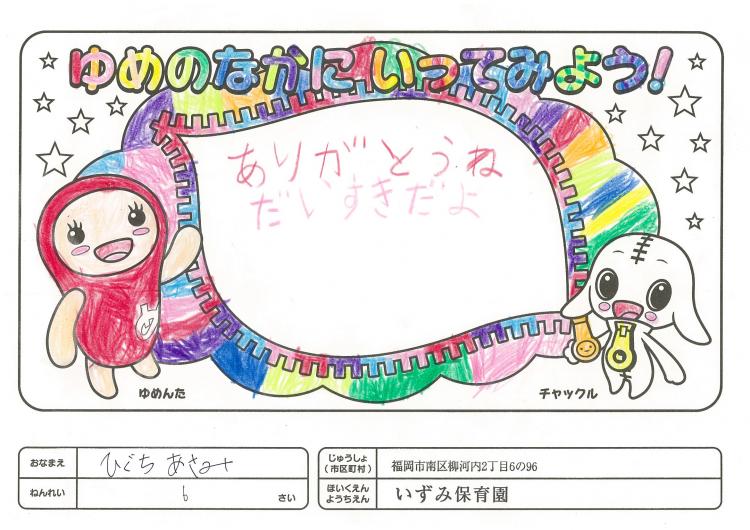 ゆめのなかにいってみよう!
ありがとうね
だいすきだよ
ゆめんた
チャックル
おなまえ ひぐち あさみ
ねんれい 6 さい
じゅうしょ(市区町村) 福岡市南区柳河内2丁目6の96
ほいくえん ようちえん いずみ保育園